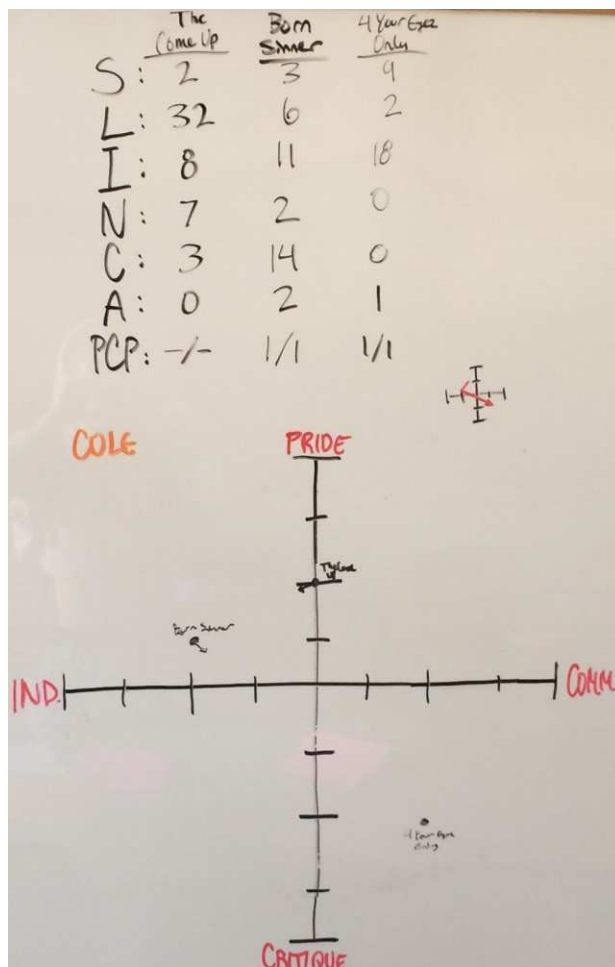 The Come Up Born Sinner 4 Your Eyez Only
S: 2 3 9
L: 32 6 2
I: 8 11 18
N: 7 2 0
C: 3 14 0
A: 0 2 1
PCP: -/- 1/1 1/1
COLE
PRIDE
The Come Up
Born Sinner
IND.
COMM.
4 Your Eyez
Only
CRITIQUE